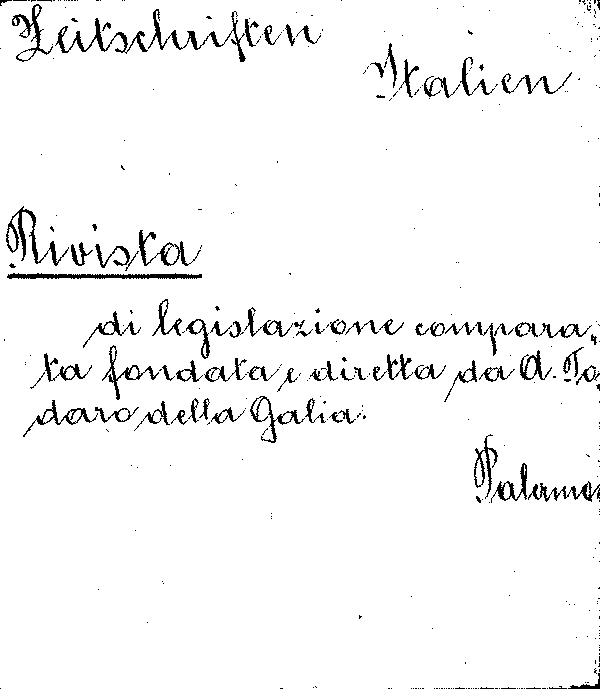 Zeitschriften
Italien
Rivista
di legislazione compara-
ta fondata e diretta da A. To-
daro della Galia.
Palermo